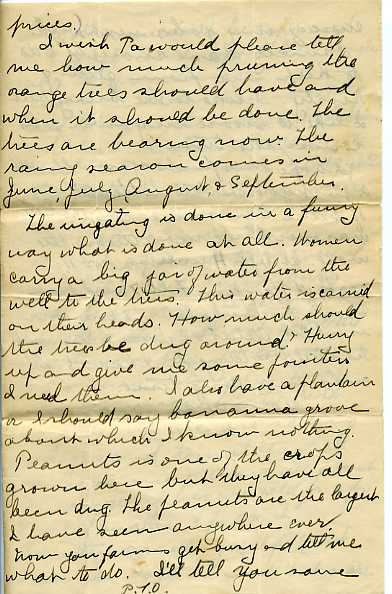 prices.
I wish Pa would please tell
me how much pruning the
orange trees should have and
when it should be done. The
trees are bearing now. The
rainy season comes in
June, July, August, & September.
The irrigating is done in a funny
way what is done at all. Women
carry a big jar of water from the
well to the trees. This water is carried
on their heads. How much should
the trees be dug around? Hurry
up and give me some pointers
I need them. I also have a plantain
or I should say bananna grove
about which I know nothing.
Peanuts is one of the crops
grown here but they have all
been dug. The peanuts are the largest
I have seen anywhere ever.
Now you farms get busy and tell me
what to do. I'll tell you some
P.T.O.